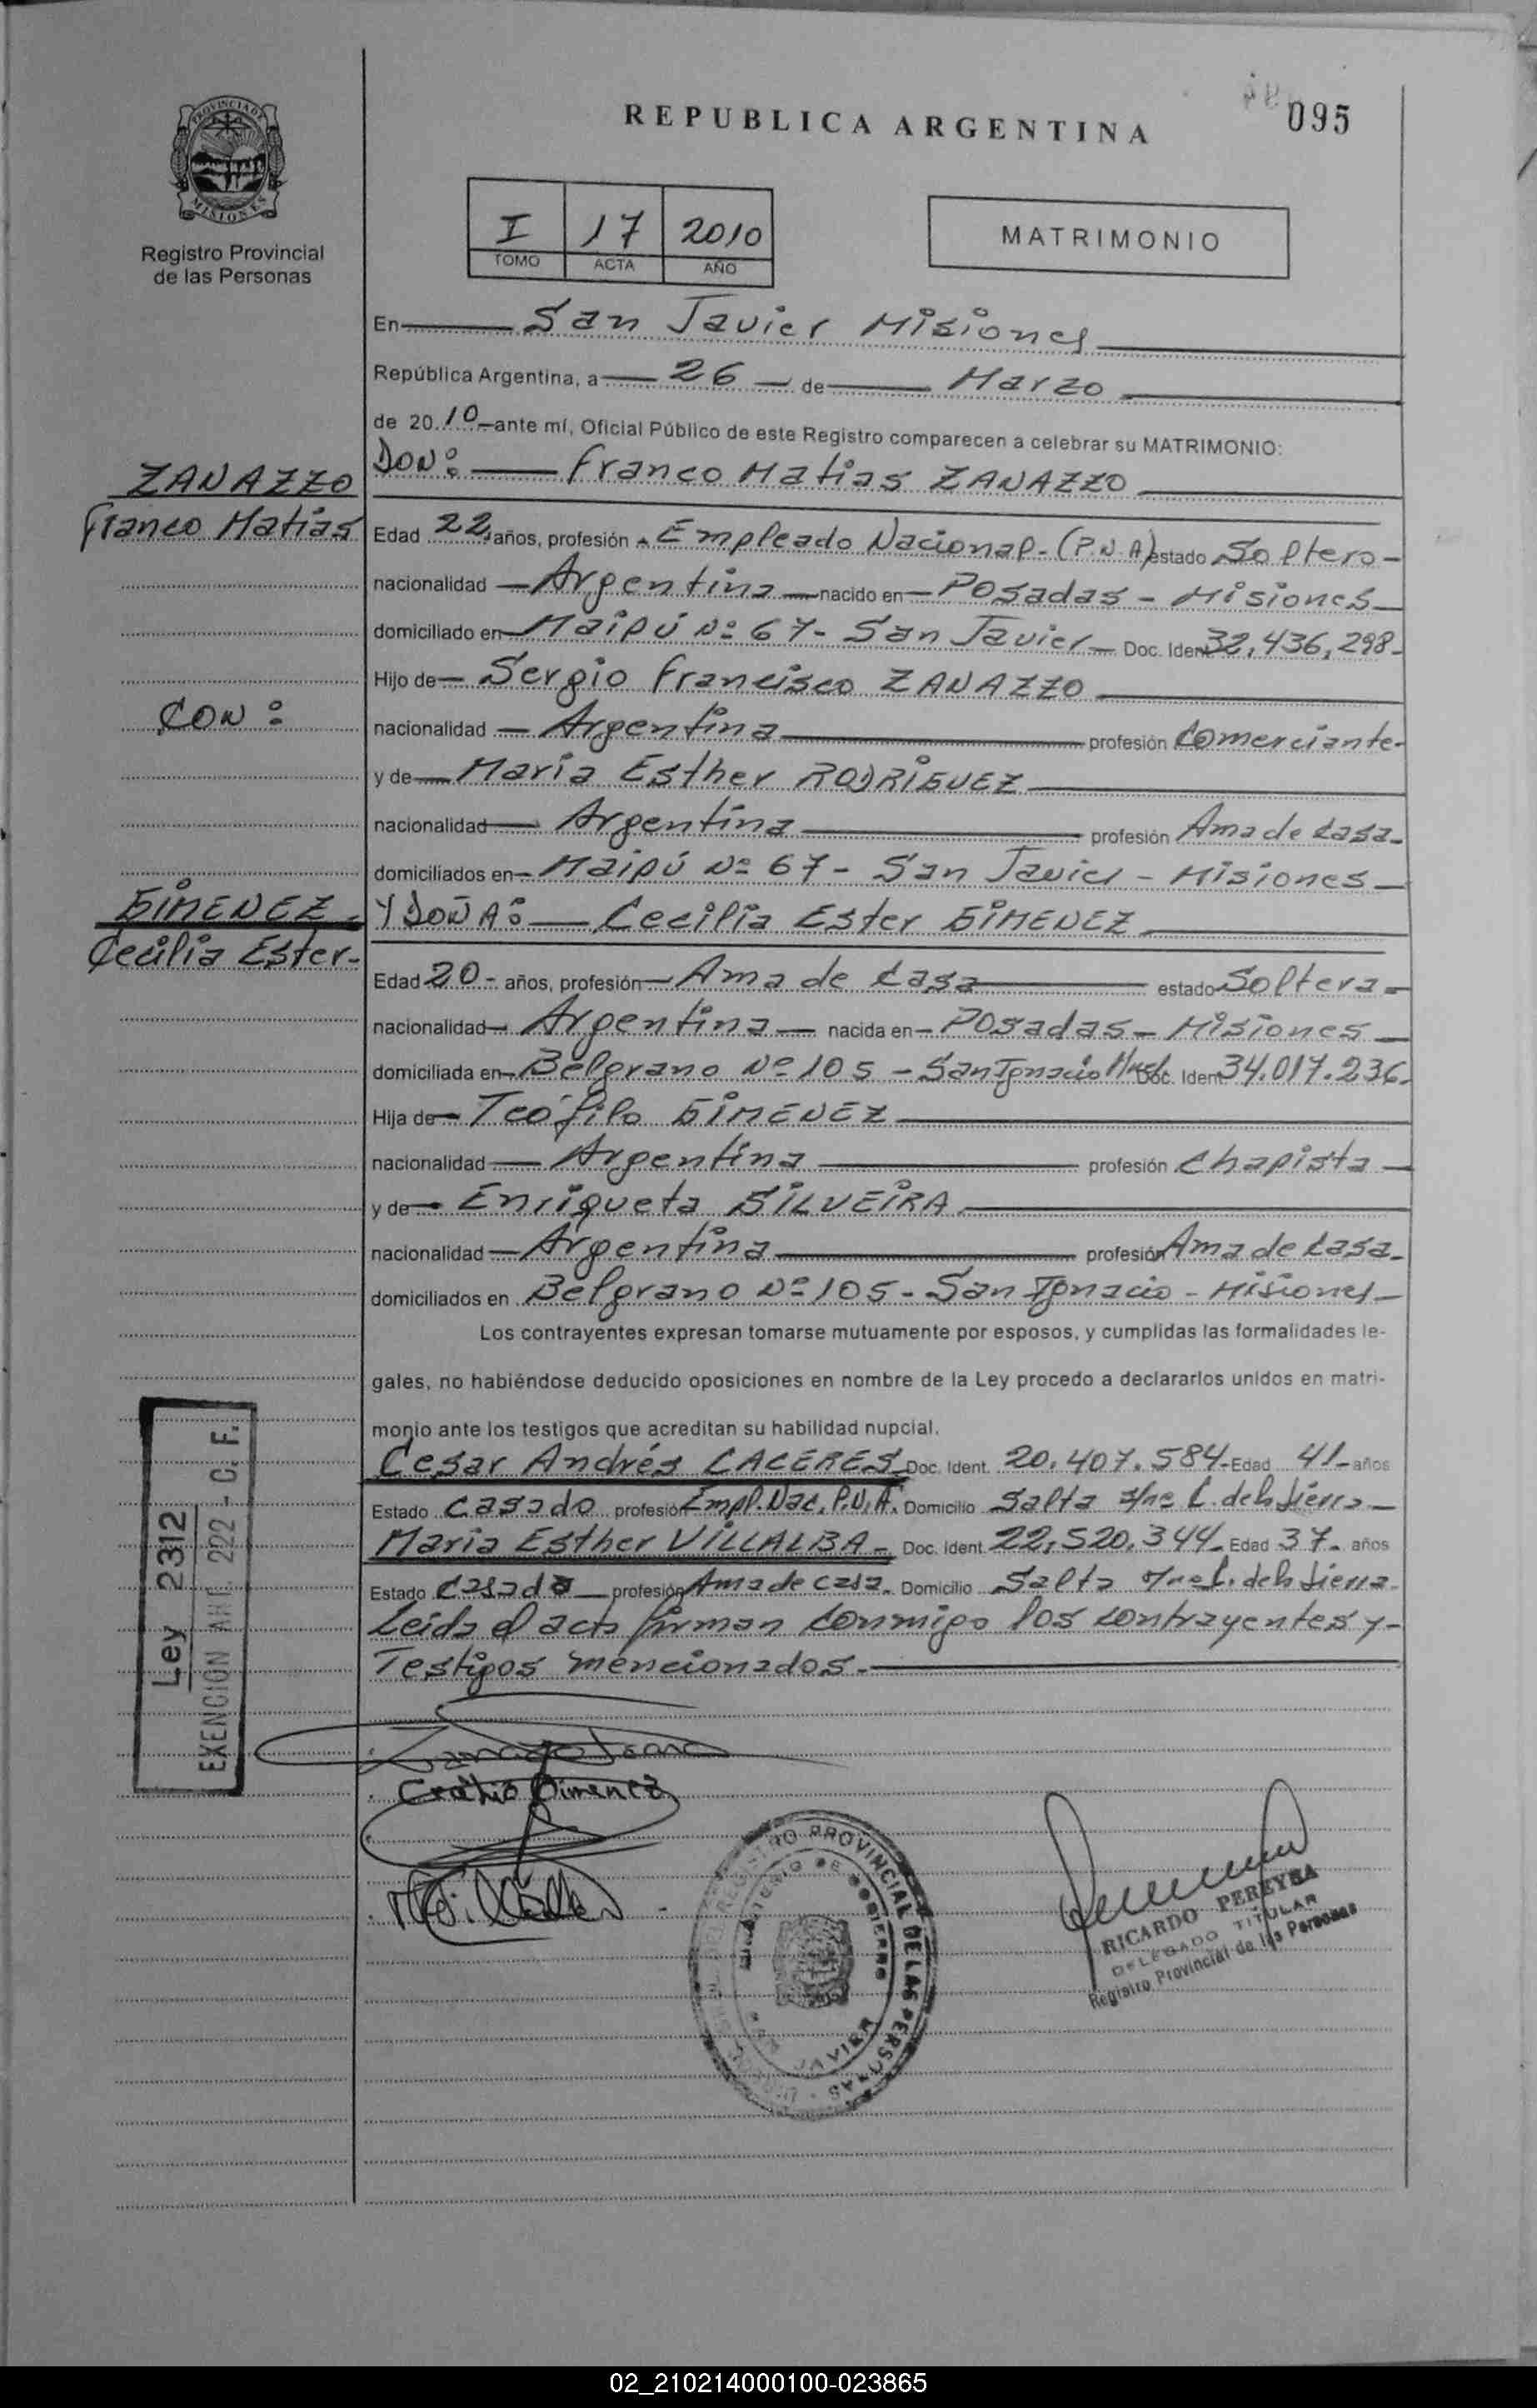 REPUBLICA ARGENTINA
095
PROVINCIA DE
MISIONES
Registro Provincial
de las Personas
I 17 2010
TOMO ACTA AÑO
MATRIMONIO
En San Javier Misiones
República Argentina, a 26 de Marzo
de 2010 ante mí, Oficial Público de este Registro comparecen a celebrar su MATRIMONIO:
ZANAZZO
Franco Matias
DON: Franco Matias ZANAZZO
Edad 22 años, profesión Empleado Nacional - (P.N.A) estado Soltero -
nacionalidad Argentina nacido en Posadas - Misiones
domiciliado en Maipú Nº 67 - San Javier - Doc. Iden 32,436,298-
Hijo de Sergio Francisco ZANAZZO
CON:
nacionalidad Argentina profesión Comerciante-
y de Maria Esther RODRIGUEZ
nacionalidad Argentina profesión Ama de Casa-
domiciliados en Maipú Nº 67 - San Javier - Misiones
GIMENEZ
Cecilia Ester-
Y DOÑA: Cecilia Ester GIMENEZ
Edad 20 - años, profesión Ama de Casa estado Soltera -
nacionalidad Argentina nacida en Posadas - Misiones
domiciliada en Belgrano Nº 105 - San Ignacio Mnes. Doc. Ident 34.017.236.
Hija de Teófilo GIMENEZ
nacionalidad Argentina profesión Chapista
y de Enriqueta SILVEIRA
nacionalidad Argentina profesión Ama de Casa-
domiciliados en Belgrano Nº 105 - San Ignacio - Misiones
Los contrayentes expresan tomarse mutuamente por esposos, y cumplidas las formalidades le-
gales, no habiéndose deducido oposiciones en nombre de la Ley procedo a declararlos unidos en matri-
monio ante los testigos que acreditan su habilidad nupcial.
Cesar Andrés CACERES Doc. Ident. 20.407.584- Edad 41- años
Estado Casado profesión Empl. Nac. P.N.A. Domicilio Salta s/nº C. de la Sierra
Maria Esther VILLALBA - Doc. Ident. 22,520,344- Edad 37- años
Estado Casada profesión Ama de casa. Domicilio Salta s/nº C. de la Sierra-
Leida el acta firman conmigo los contrayentes y-
Testigos mencionados.-
Ley 2312
EXENCION ART. 222 - C. F.
Cecilia Gimenez
REGISTRO PROVINCIAL DE LAS PERSONAS
MINISTERIO DE GOBIERNO
SAN JAVIER
RICARDO PEREYRA
DELEGADO TITULAR
Registro Provincial de las Personas
02_210214000100-023865